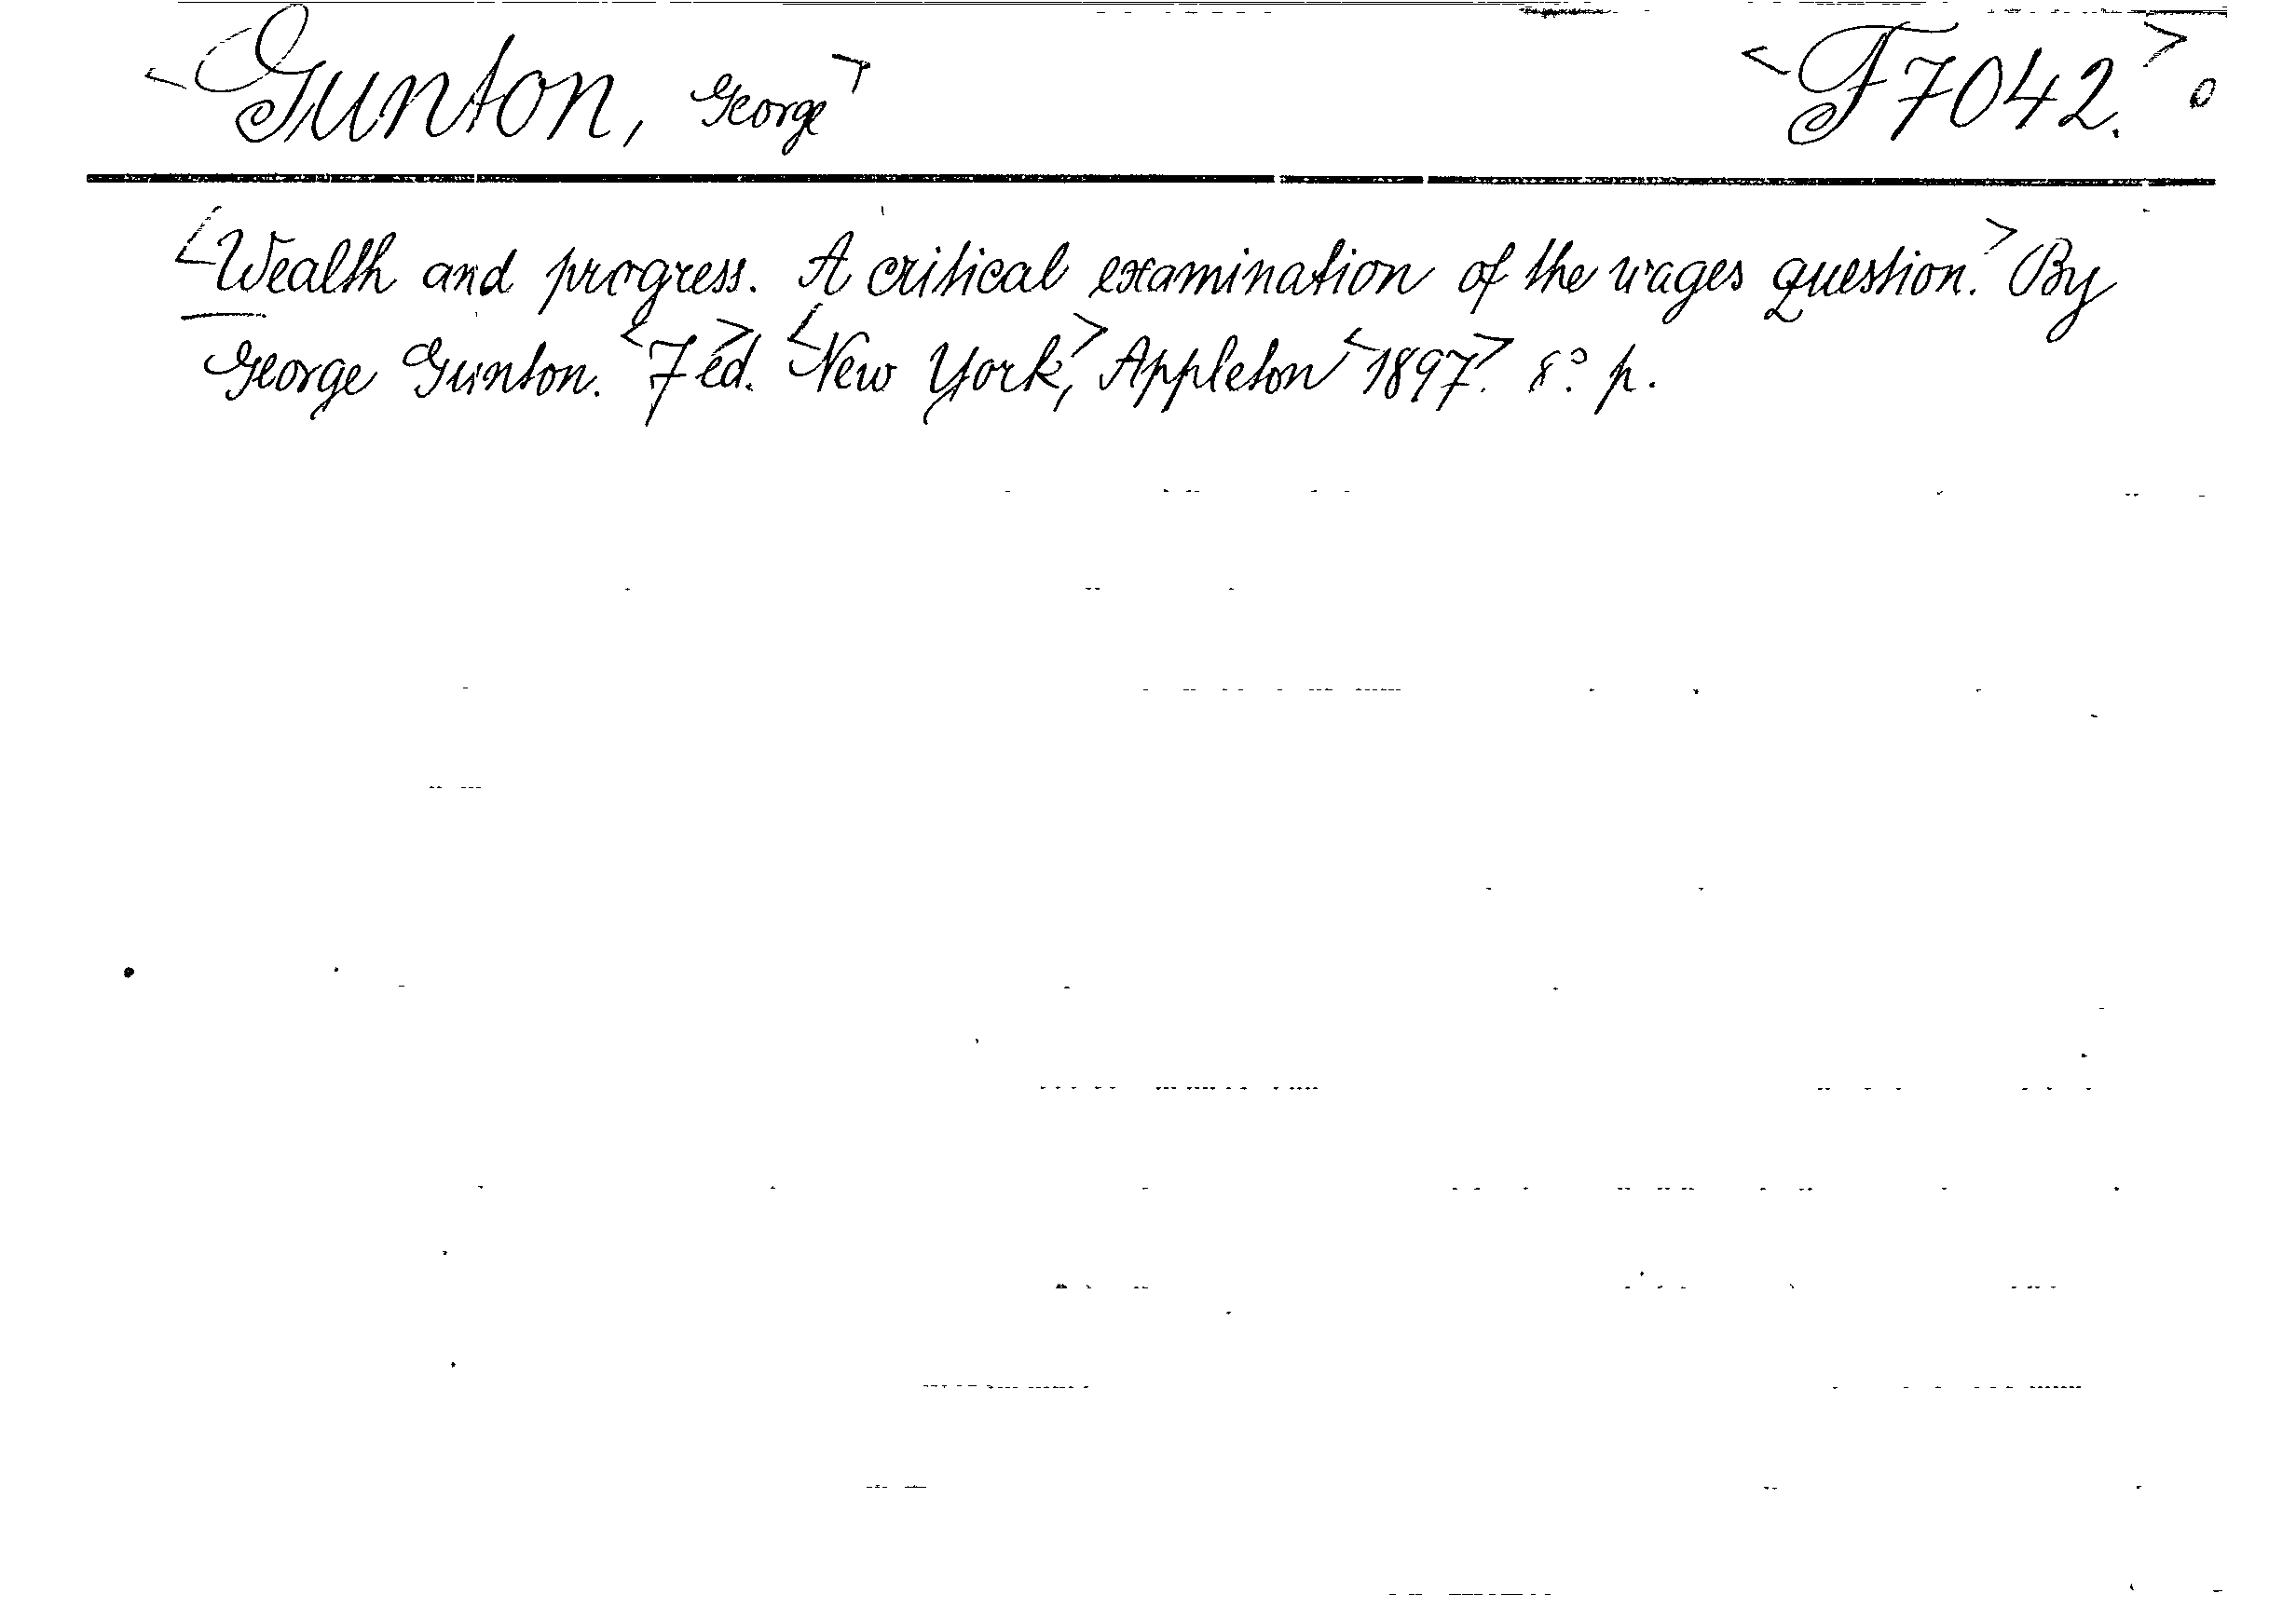 <Gunton, George> <F7042.> 0
<Wealth and progress. A critical examination of the wages question.> By
George Gunton. <7> ed. <New York,> Appleton <1897>. 8º. p.